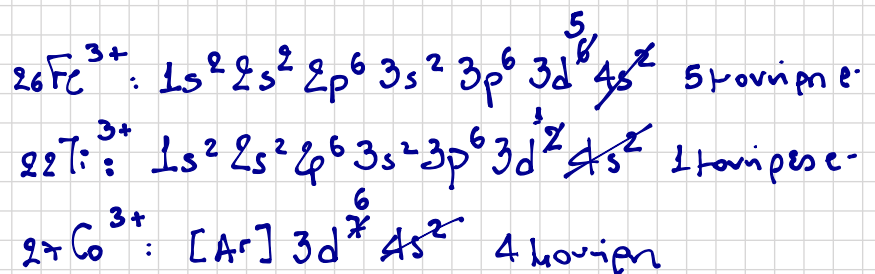 ₂₆Fe³⁺: 1s² 2s² 2p⁶ 3s² 3p⁶ 3d⁵ 5 μονήρη e⁻
₂₂Ti³⁺: 1s² 2s² 2p⁶ 3s² 3p⁶ 3d¹ 1 μονήρες e⁻
₂₇Co³⁺: [Ar] 3d⁶ 4 μονήρη